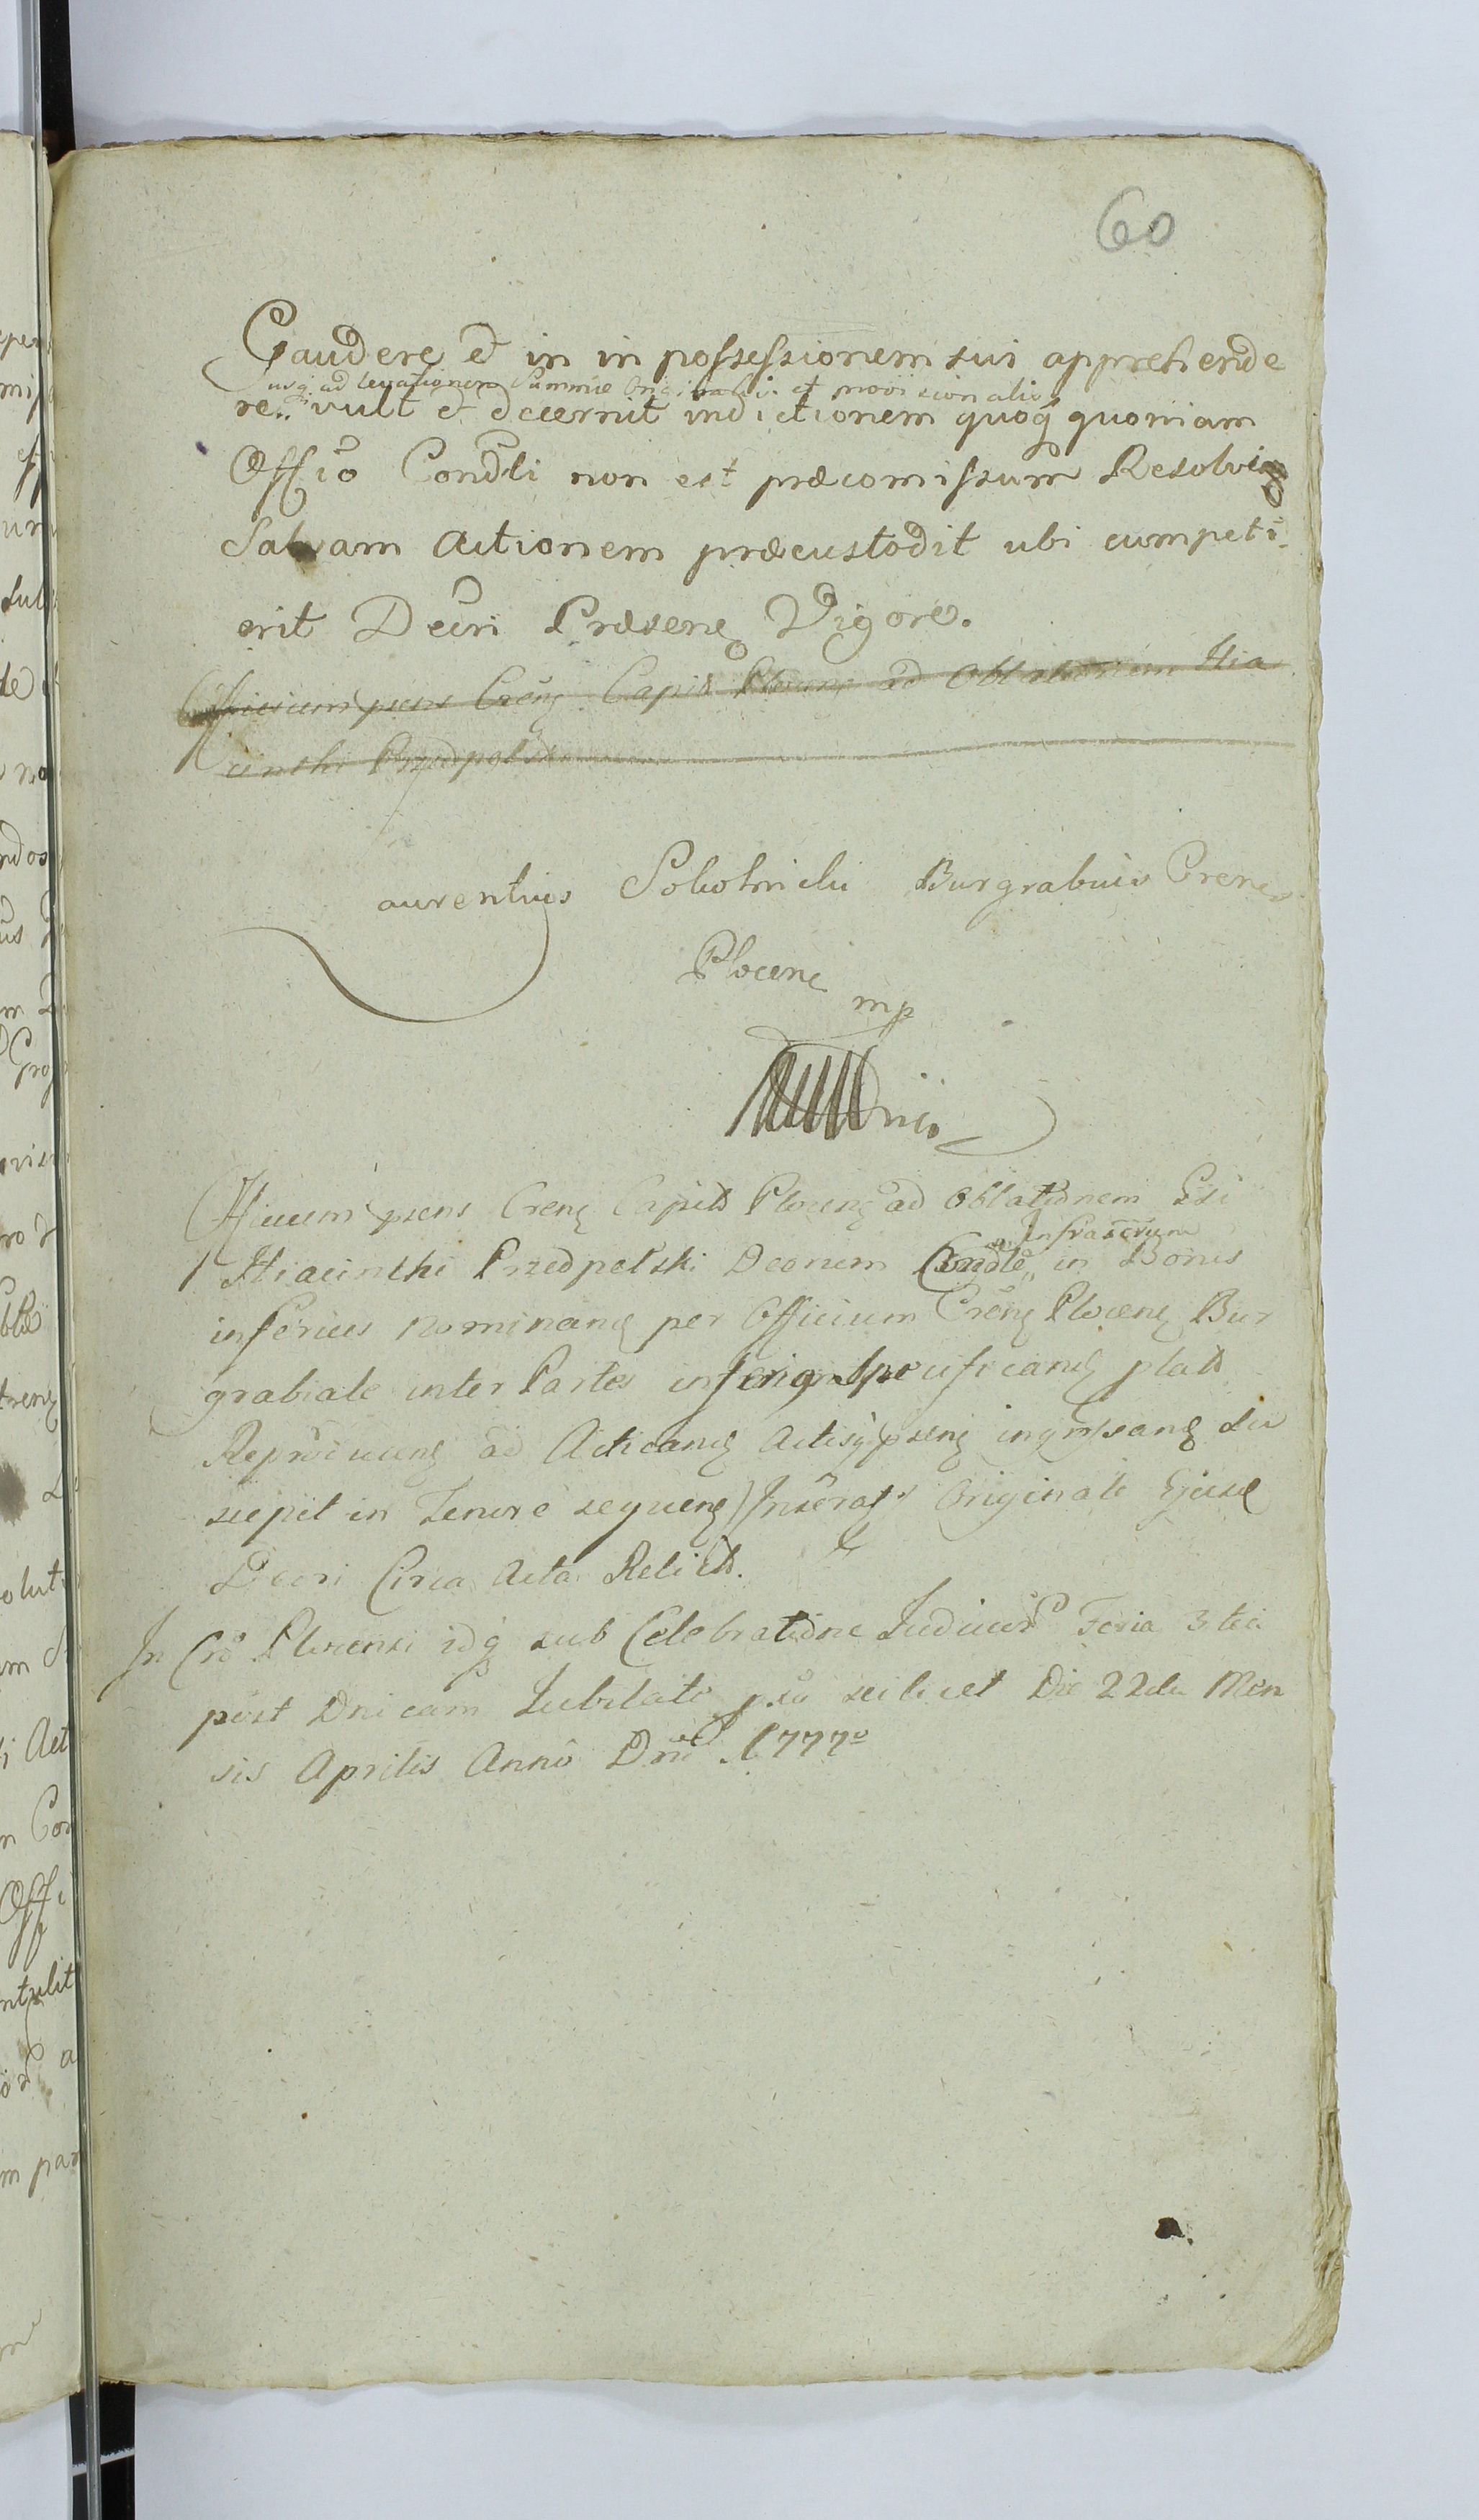 60
Gaudere et in in possessionem sui apprehende
usq ad levationem Summæ Originalis et provisionalis
re.. vult et dcernit indictionem quoq quoniam
Offio Condli non est præcomissum Resolvi
Salvam Actionem præcustodit ubi cumpeti
erit Decri Præsenę Vigore.
Officium psens Crenę Capit Plocenę ad Oblationem Hia
cinthi Przedpelski
aurentius Burgrabius Crenę
Plocenę
mp
Officium psens Crenę Capit Plocenę ad Oblationem Gsi
Infrascrum
Hiacinthi Przedpelski Decrum Condle in Bonis
inferius Nominanę per Officium Crenę Plocenę Bur
grabiale inter Partes inferius Specificanę plat
ad Acticanę Actisq psenę ingrossanę Su
scepit in Tenore sequenę Originale Ejusd
Decri Circa Acta Relict.
In Cro Plocensi idq sub Celebratione Judicior Feria 3tia
post Dnicam Jubilate pxa scilicet Die 22da Men
sis Aprilis Anno Dni 1777o